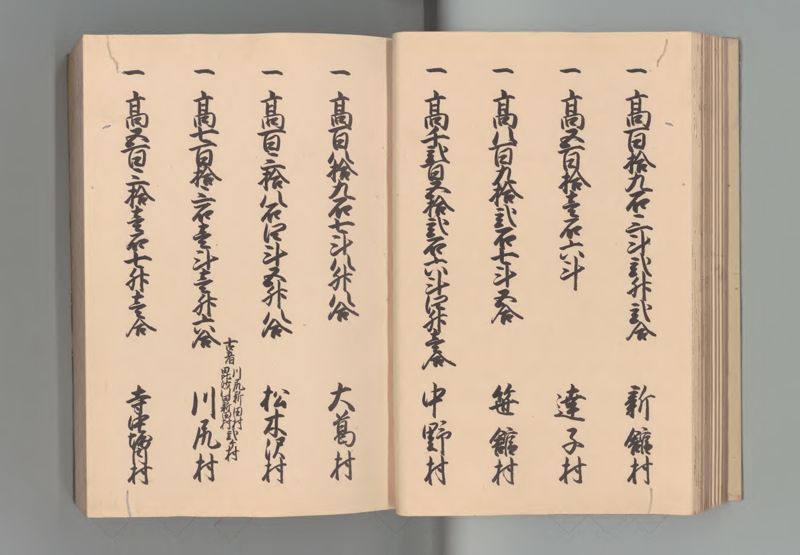 一 高百拾九石三斗弐升弐合 新舘村
一 高五百拾壱石六斗 達子村
一 高八百九拾弐石七斗五合 笹舘村
一 高千弐百五拾弐石六斗四升壱合 中野村
一 高百八拾九石七斗八升八合 大葛村
一 高百三拾八石四斗五升八合 松木沢村
古者 川尻新田村 新田村弐ヶ村
一 高七百拾三石壱斗壱升六合 川尻村
一 高五百三拾壱石七升壱合 寺 村